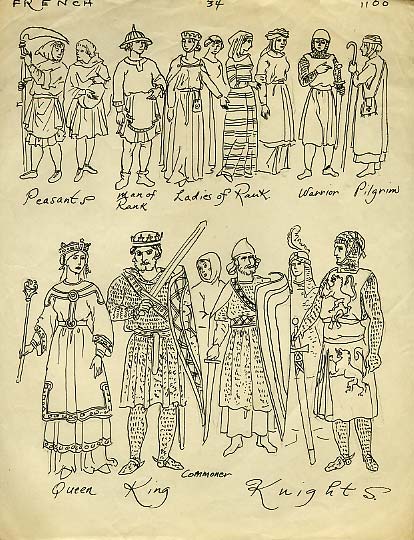 FRENCH 34 1100
Peasants Man of Rank Ladies of Rank Warrior Pilgrim
Commoner
Queen King Knights